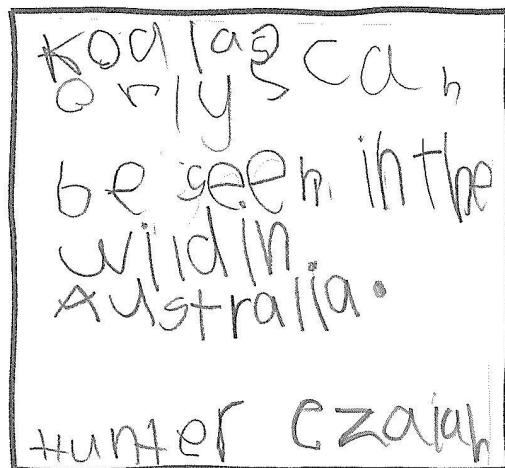 Koalas can
only
be seen in the
wild in
Australia.
Hunter Ezaiah